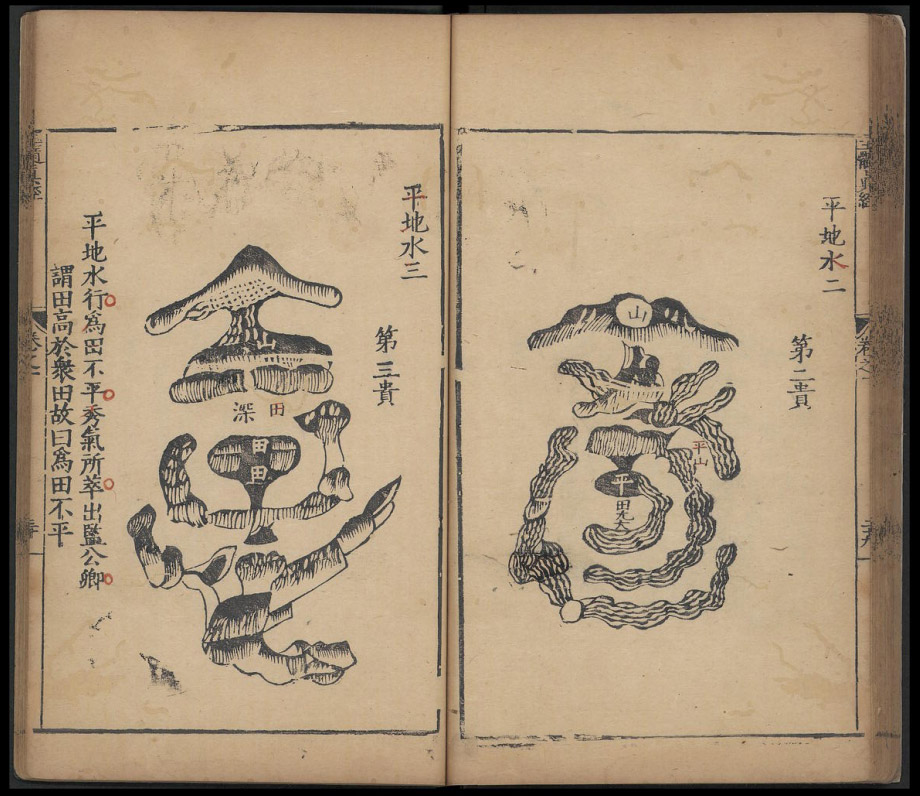 平地水二
第二貴
山
平山
平
田
平地水三
第三貴
山
田
深
田田
田
平地水行為田不平秀氣所萃出監公卿
謂田高於衆田故曰為田不平
卷之一